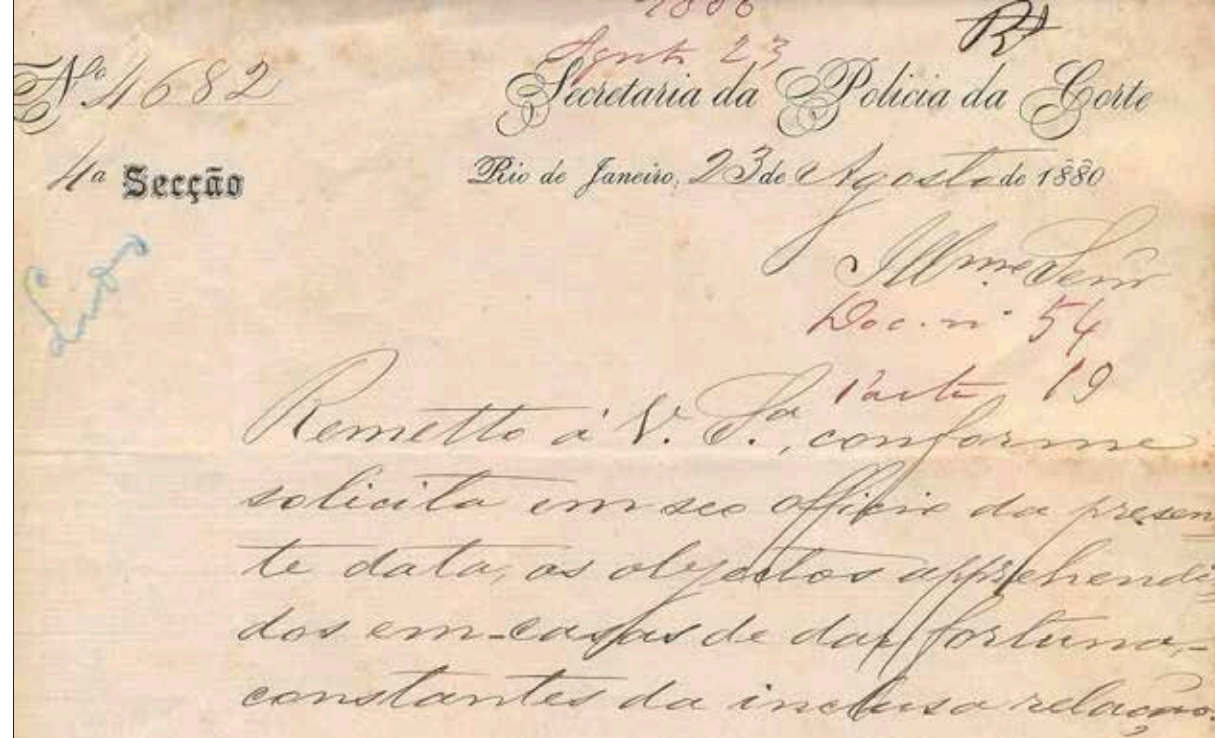 Agosto 23
Nº 4682
Secretaria da Policia da Corte
4ª Secção
Rio de Janeiro, 23 de Agosto de 1880
Illmo. Senr
Doc. nº 54
Pasta 19
Remetto á V. Sª, conforme
solicita em seo officio da presen
te data, os objectos apprehendi
dos em casas de dar fortuna,
constantes da inclusa relação.